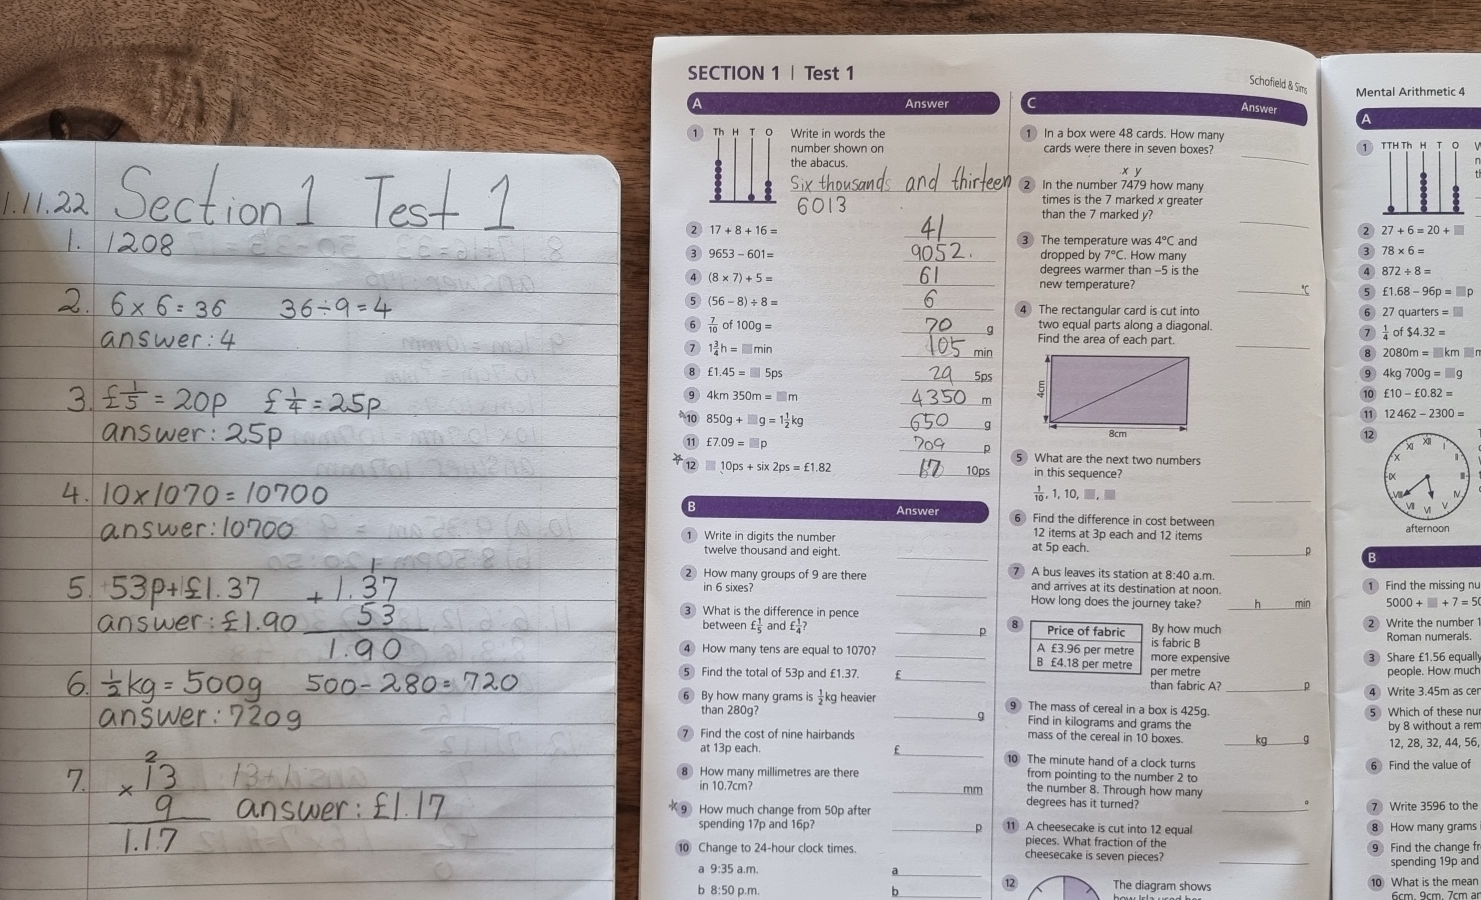 1.11.22 Section 1 Test 1
1. 1208
2. 6 x 6 = 36 36 ÷ 9 = 4
answer: 4
3. £1/5 = 20p £1/4 = 25p
answer: 25p
4. 10x1070 = 10700
answer: 10700
5. 53p+£1.37
answer: £1.90
1
+ 1.37
53
1.90
6. 1/2 kg = 500g 500 - 280 = 720
answer: 720g
7. 2
x 13
9
1.17
answer: £1.17
SECTION 1 | Test 1
Schofield & Sims
A Answer
1 Th H T O Write in words the
number shown on
the abacus.
Six thousands and thirteen
6013
2 17 + 8 + 16 = 41
3 9653 – 601= 9052.
4 (8 × 7) + 5 = 61
5 (56 – 8) ÷ 8 = 6
6 7/10 of 100g = 70 g
7 1 3/4 h = □ min 105 min
8 £1.45 = □ 5ps 29 5ps
9 4km 350m = □ m 4350 m
*10 850g + □ g = 1 1/2 kg 650 g
11 £7.09 = □ p 709 p
*12 □ 10ps + six 2ps = £1.82 17 10ps
B Answer
1 Write in digits the number
twelve thousand and eight.
2 How many groups of 9 are there
in 6 sixes?
3 What is the difference in pence
between £1/5 and £1/4? p
4 How many tens are equal to 1070?
5 Find the total of 53p and £1.37. £
6 By how many grams is 1/2 kg heavier
than 280g? g
7 Find the cost of nine hairbands
at 13p each. £
8 How many millimetres are there
in 10.7cm? mm
*9 How much change from 50p after
spending 17p and 16p? p
10 Change to 24-hour clock times.
a 9:35 a.m. a
b 8:50 p.m. b
C Answer
1 In a box were 48 cards. How many
cards were there in seven boxes?
x y
2 In the number 7479 how many
times is the 7 marked x greater
than the 7 marked y?
3 The temperature was 4°C and
dropped by 7°C. How many
degrees warmer than –5 is the
new temperature? °C
4 The rectangular card is cut into
two equal parts along a diagonal.
Find the area of each part.
4cm
8cm
5 What are the next two numbers
in this sequence?
1/10, 1, 10, □, □
6 Find the difference in cost between
12 items at 3p each and 12 items
at 5p each. p
7 A bus leaves its station at 8:40 a.m.
and arrives at its destination at noon.
How long does the journey take? h min
8 Price of fabric
A £3.96 per metre
B £4.18 per metre
By how much
is fabric B
more expensive
per metre
than fabric A? p
9 The mass of cereal in a box is 425g.
Find in kilograms and grams the
mass of the cereal in 10 boxes. kg g
10 The minute hand of a clock turns
from pointing to the number 2 to
the number 8. Through how many
degrees has it turned? °
11 A cheesecake is cut into 12 equal
pieces. What fraction of the
cheesecake is seven pieces?
12 The diagram shows
Mental Arithmetic 4
A
1 TTH Th H T O
2 27 + 6 = 20 + □
3 78 × 6 =
4 872 ÷ 8 =
5 £1.68 – 96p = □ p
6 27 quarters = □
7 1/4 of $4.32 =
8 2080m = □ km □ m
9 4kg 700g = □ g
10 £10 – £0.82 =
11 12 462 – 2300 =
12
XII I II III IV V VI VII VIII IX X XI
afternoon
B
1 Find the missing
5000 + □ + 7 =
2 Write the number
Roman numerals.
3 Share £1.56 equally
people. How much
4 Write 3.45m as
5 Which of these
by 8 without a
12, 28, 32, 44, 56,
6 Find the value of
7 Write 3596 to the
8 How many grams
9 Find the change
spending 19p and
10 What is the mean
6cm, 9cm, 7cm